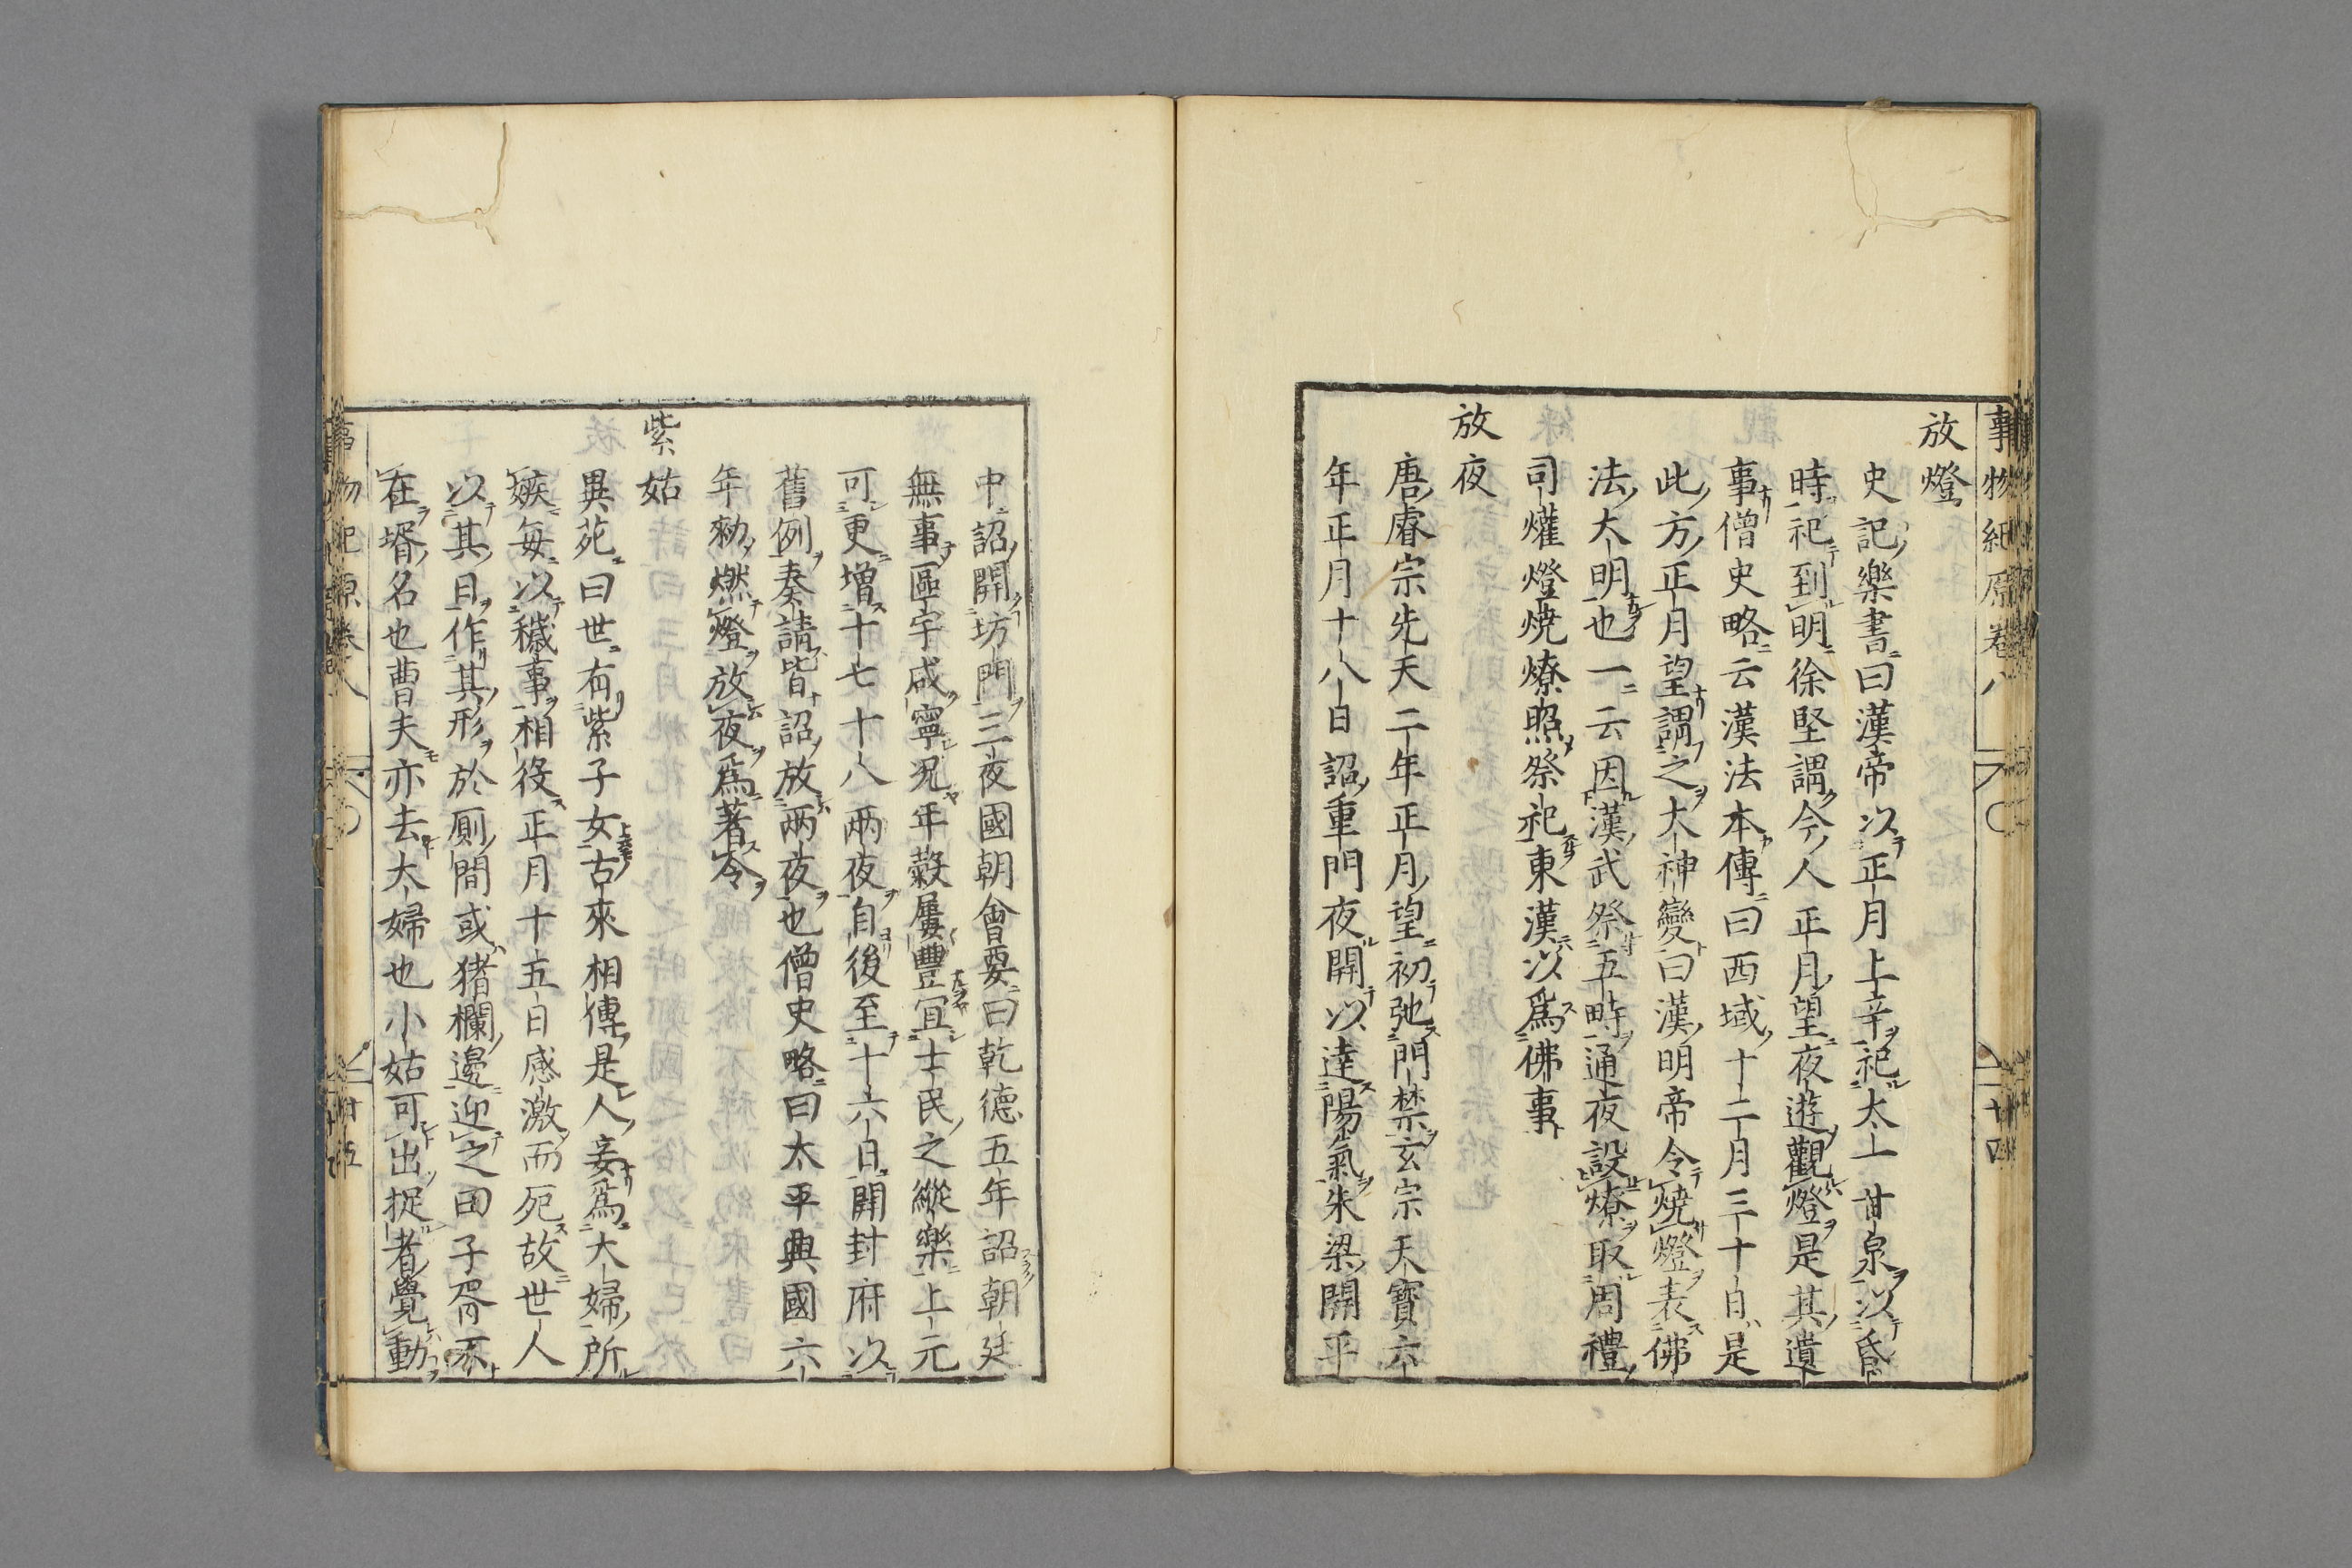 事物紀原卷八
廿四
放燈
史記樂書曰漢帝以正月上辛祀太一甘泉以昏
時祀到明徐堅謂今人正月望夜遊觀燈是其遺
事僧史略云漢法本傳曰西域十二月三十日是
此方正月望謂之大神變曰漢明帝令燒燈表佛
法大明也一云因漢武祭五畤通夜設燎取周禮
司爟燈燒燎照祭祀東漢以爲佛事
放夜
唐睿宗先天二年正月望初弛門禁玄宗天寶六
年正月十八日詔重門夜開以達陽氣朱梁開平
中詔開坊門三夜國朝會要曰乾德五年詔朝廷
無事區宇咸寧况年穀屢豐宜士民之縱樂上元
可更增十七十八兩夜自後至十六日開封府以
舊例奏請皆詔放兩夜也僧史略曰太平興國六
年勑燃燈放夜爲著令
紫姑
異苑曰世有紫子女古來相傳是人妾爲大婦所
嫉每以穢事相役正月十五日感激而死故世人
以其日作其形於厠間或猪欄邊迎之曰子胥不
在壻名也曹夫亦去大婦也小姑可出捉者覺動
事物紀原卷八
廿五